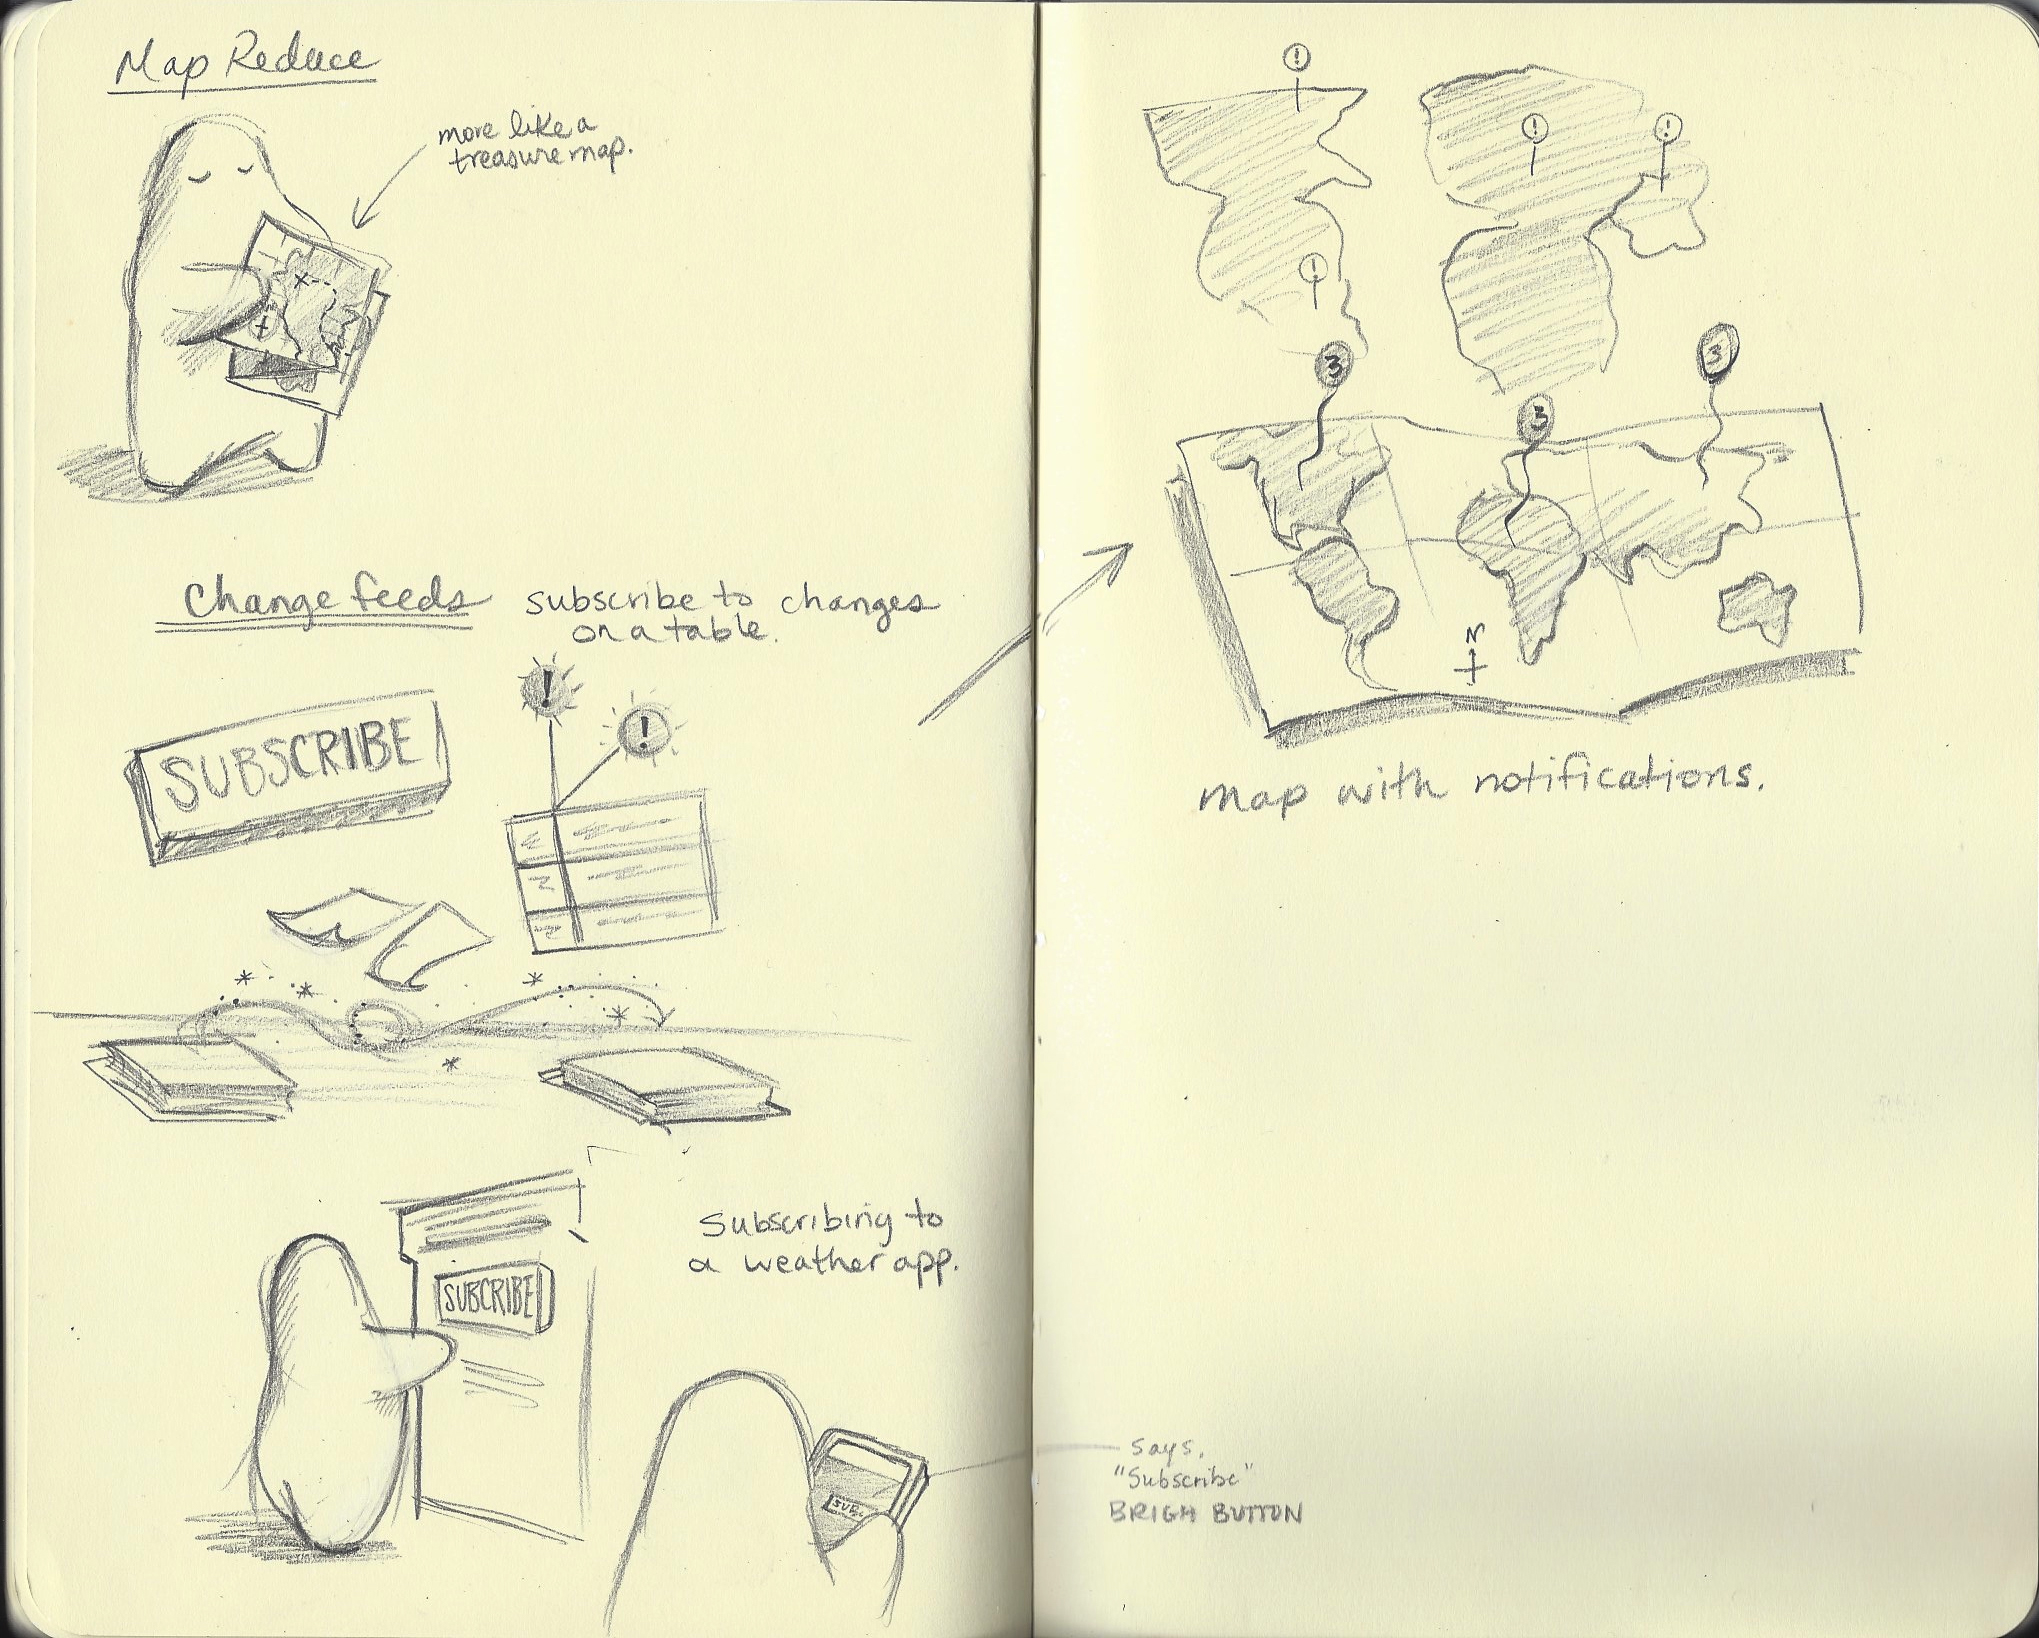 Map Reduce
more like a
treasure map.
Change feeds
subscribe to changes
on a table.
!
!
SUBSCRIBE
Subscribing to
a weather app.
SUBCRIBE
SUB
!
!
!
!
3
3
3
N
Map with notifications.
says,
"Subscribe"
BRIGH BUTTON